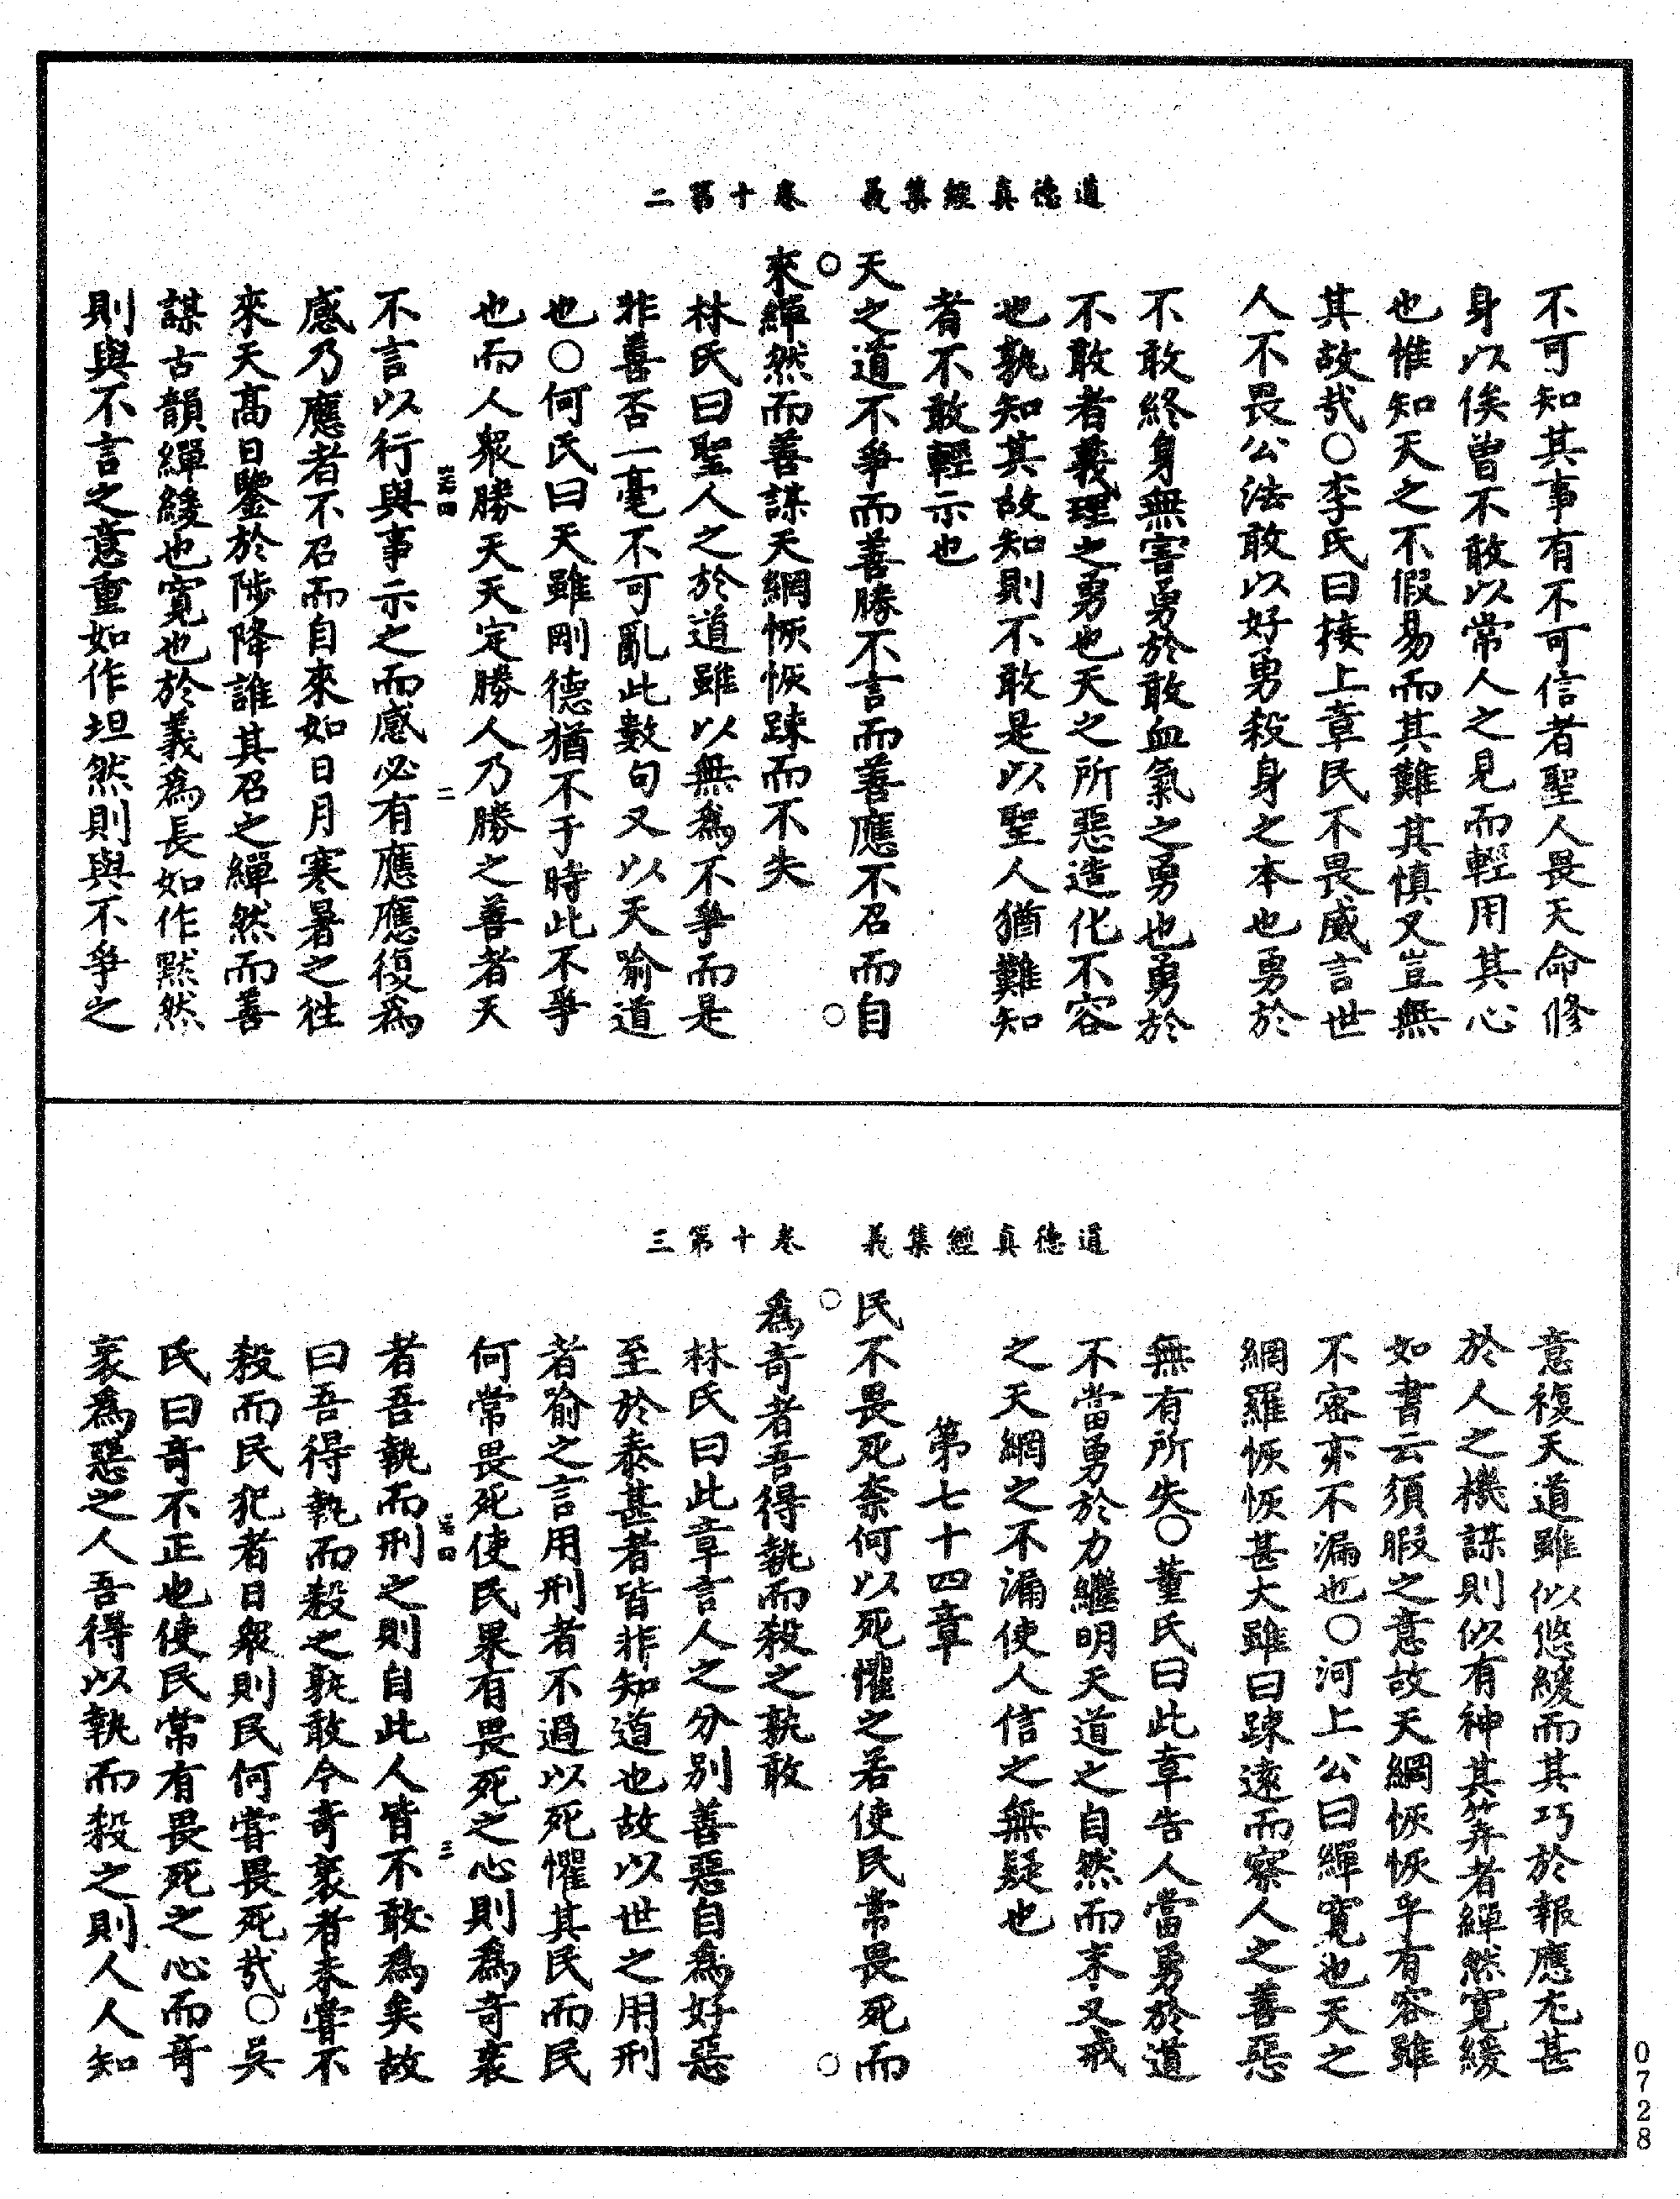 道德真經集義　卷十第二
不可知其事有不可信者聖人畏天命修
身以俟曾不敢以常人之見而輕用其心
也惟知天之不假易而其難其慎又豈無
其故哉○李氏曰接上章民不畏威言世
人不畏公法敢以好勇殺身之本也勇於
不敢終身無害勇於敢血氣之勇也勇於
不敢者義理之勇也天之所惡造化不容
也孰知其故知則不敢是以聖人猶難知
者不敢輕示也
天之道不爭而善勝不言而善應不召而自
○○
來繟然而善謀天網恢恢踈而不失
林氏曰聖人之於道雖以無為不爭而是
非善否一毫不可亂此數句又以天喻道
也○何氏曰天雖剛德猶不干時此不爭
也而人衆勝天天定勝人乃勝之善者天
二
不言以行與事示之而感必有應應復為
感乃應者不召而自來如日月寒暑之徃
來天髙日鑒於陟降誰其召之繟然而善
謀古韻繟緩也寛也於義為長如作黙然
則與不言之意重如作坦然則與不爭之
道德真經集義　卷十第三
意複天道雖似悠緩而其巧於報應尤甚
於人之機謀則似有神其筭者繟然寛緩
如書云須暇之意故天網恢恢乎有容雖
不宻亦不漏也○河上公曰繟寛也天之
網羅恢恢甚大雖曰踈遠而察人之善惡
無有所失○董氏曰此章告人當勇於道
不當勇於力繼明天道之自然而末又戒
之天網之不漏使人信之無疑也
第七十四章
民不畏死柰何以死懼之若使民常畏死而
○○
為奇者吾得執而殺之孰敢
林氏曰此章言人之分别善惡自為好惡
至於泰甚者皆非知道也故以世之用刑
者喻之言用刑者不過以死懼其民而民
何常畏死使民果有畏死之心則為奇衺
三
者吾執而刑之則自此人皆不敢為矣故
曰吾得執而殺之孰敢今奇衺者未嘗不
殺而民犯者日衆則民何嘗畏死哉○吳
氏曰竒不正也使民常有畏死之心而竒
衺為惡之人吾得以執而殺之則人人知
0728